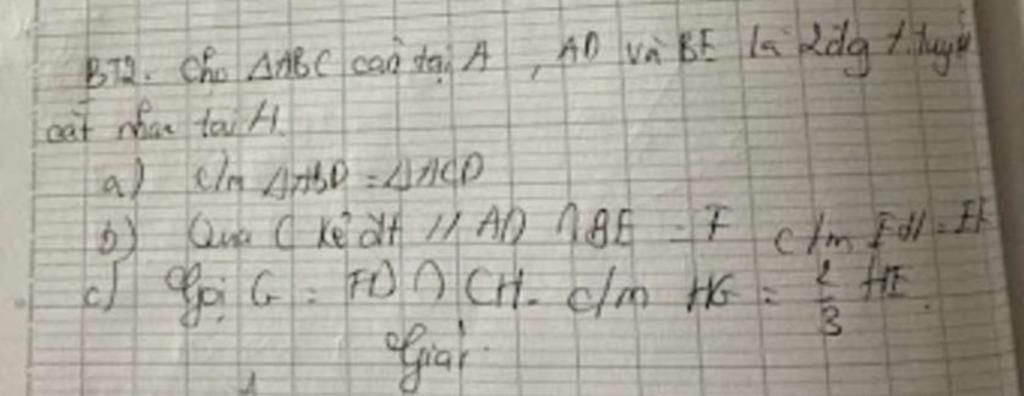 BT2. Cho ΔABC cân tại A, AD và BE là 2 đg t.tuyến
cắt nhau tại H.
a) c/m ΔABD = ΔACD
b) Qua C kẻ đt // AD ∩ BE = F c/m EH = EF
c) Gọi G = FD ∩ CH. c/m HG = 2/3 HE.
Giải